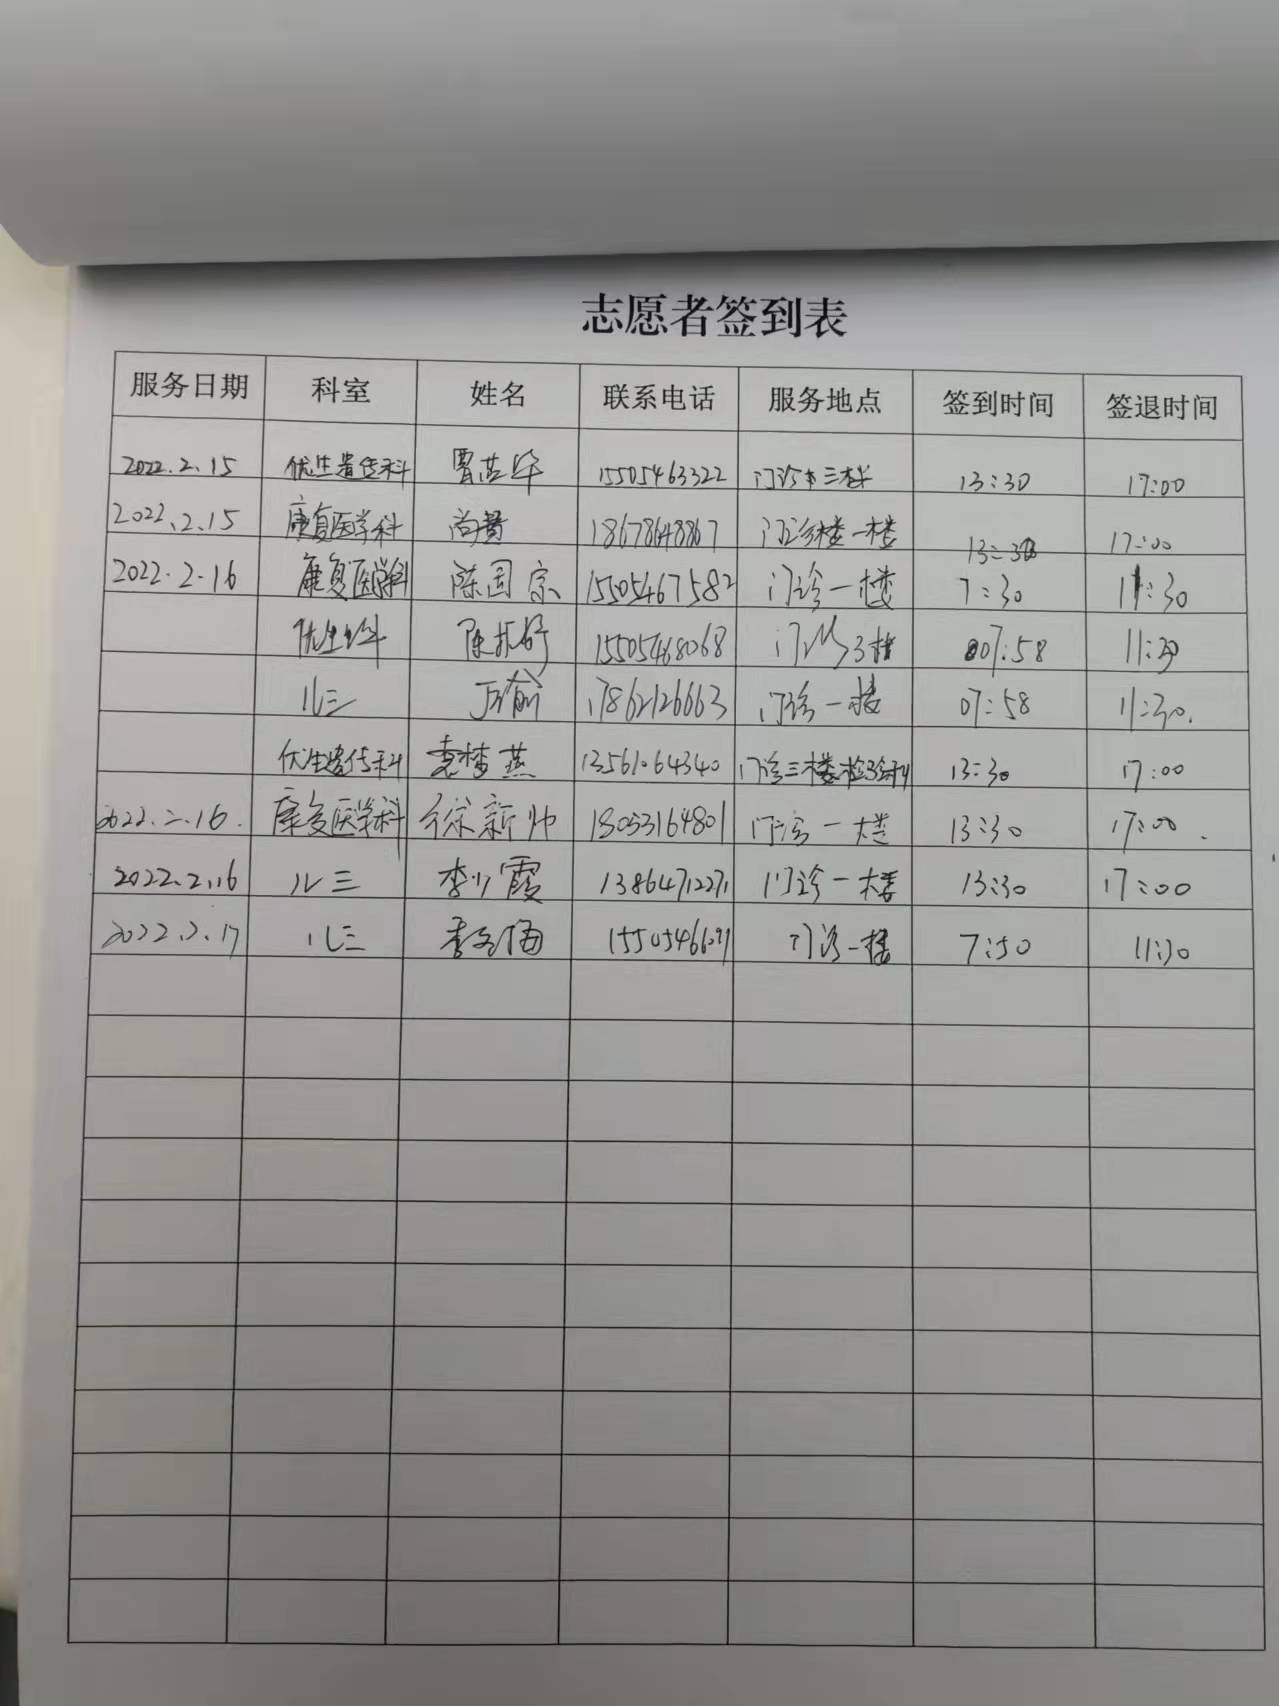 志愿者签到表
服务日期 科室 姓名 联系电话 服务地点 签到时间 签退时间
2022.2.15 优生遗传科 15505463322 门诊三楼 13:30 17:00
2022.2.15 康复医学科 尚贵 18678648867 门诊楼一楼 13:30 17:00
2022.2.16 康复医学科 陈国宗 15505467582 门诊一楼 7:30 11:30
优生科 15505468068 门诊3楼 07:58 11:30
儿三 17862126663 门诊一楼 07:58 11:30.
优生遗传科 袁梦燕 13561064340 门诊三楼检验科 13:30 17:00
2022.2.16. 康复医学科 徐新帅 18053164801 门诊一楼 13:30 17:00.
2022.2.16 儿三 李少霞 13864712271 门诊一楼 13:30 17:00
2022.2.17 儿三 门诊一楼 7:50 11:30